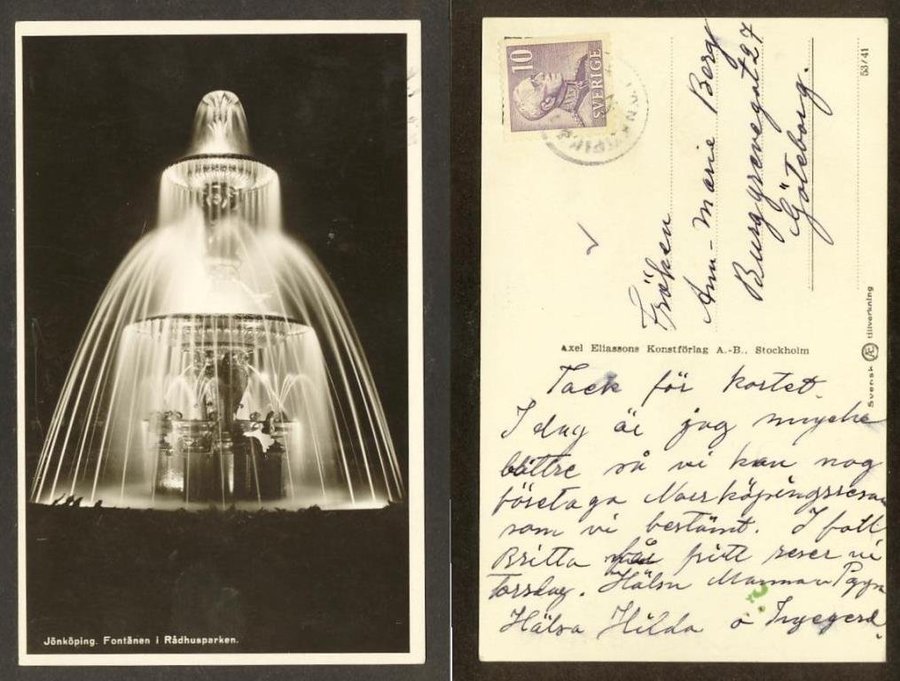 Jönköping. Fontänen i Rådhusparken.
10
SVERIGE
53/41
Fröken
Ann-Marie Berg
Burggrevegat 27
Göteborg.
Axel Eliassons Konstförlag A.-B., Stockholm
Svensk Æ tillverkning
Tack för kortet.
I dag är jag mycke
bättre så vi kan nog
företaga Norrköpingsresan
som vi bestämt. I fall
Britta får fritt reser vi
Torsdag. Hälsa Mamma o Pappa
Hälsa Hilda o Ingegerd.